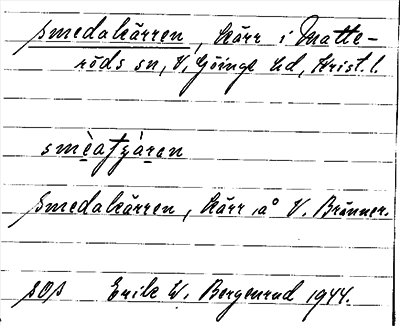 Smedakärren, Kärr i Matte-
röds sn, V. Göinge hd, Krist. l.
Smedakärren, Kärr å V. Bränner.
SOS Erik W. Bergenrud 1944.